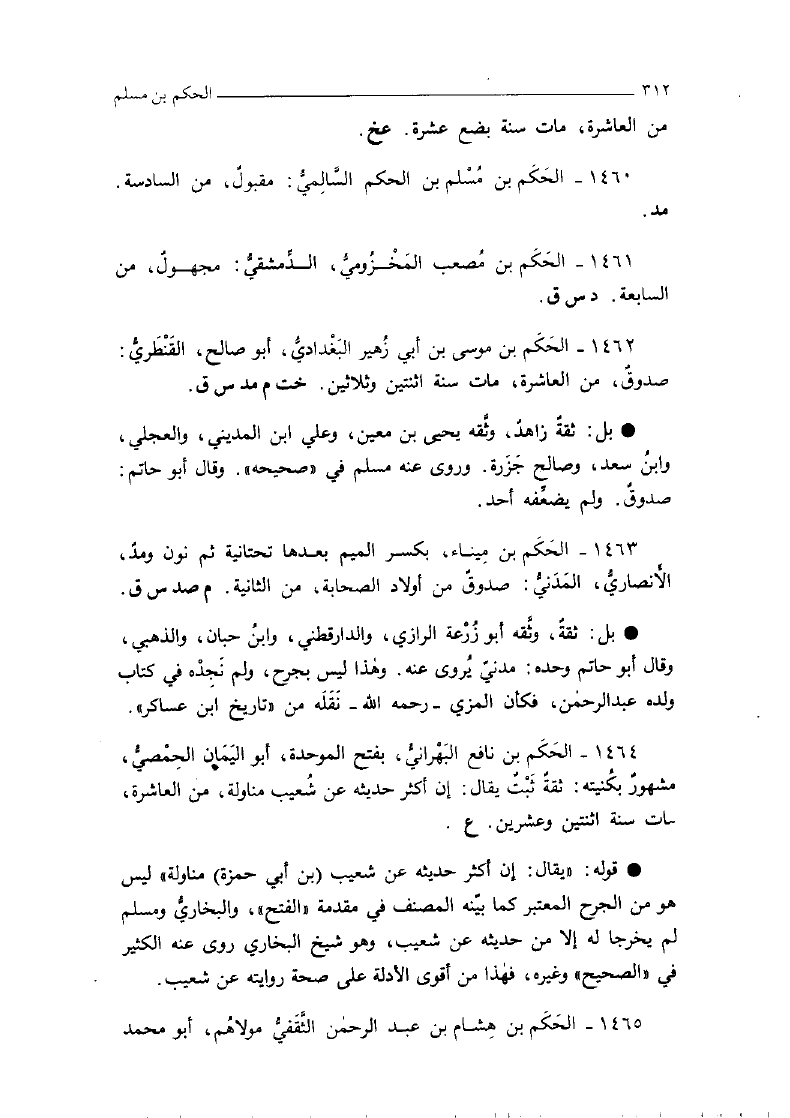 ٣١٢ ــــــــــــــــــــــــــــــــــــــــــــــــ الحكم بن مسلم
من العاشرة، مات سنة بضع عشرة. عخ.
١٤٦٠ ـ الحَكَم بن مُسْلم بن الحكم السَّالِميُّ: مقبولٌ، من السادسة.
مد.
١٤٦١ ـ الحَكَم بن مُصعب المَخْزُوميُّ، الدِّمشقيُّ: مجهولٌ، من
السابعة. د س ق.
١٤٦٢ ـ الحَكَم بن موسى بن أبي زُهير البَغْداديُّ، أبو صالح، القَنْطَريُّ:
صدوقٌ، من العاشرة، مات سنة اثنتين وثلاثين. خت م مد س ق.
● بل: ثقةٌ زاهدٌ، وثَّقه يحيى بن معين، وعلي ابن المديني، والعجلي،
وابنُ سعد، وصالح جَزَرة. وروى عنه مسلم في «صحيحه». وقال أبو حاتم:
صدوقٌ. ولم يضعِّفه أحد.
١٤٦٣ ـ الحَكَم بن مِيناء، بكسر الميم بعدها تحتانية ثم نون ومدّ،
الأَنصاريُّ، المَدَنيُّ: صدوقٌ من أولاد الصحابة، من الثانية. م صد س ق.
● بل: ثقةٌ، وثَّقه أبو زُرْعة الرازي، والدارقطني، وابنُ حبان، والذهبي،
وقال أبو حاتم وحده: مدنيّ يُروى عنه. وهٰذا ليس بجرح، ولم نَجِدْه في كتاب
ولده عبدالرحمٰن، فكأن المزي ـ رحمه الله ـ نَقَلَه من «تاريخ ابن عساكر».
١٤٦٤ ـ الحَكَم بن نافع البَهْرانيُّ، بفتح الموحدة، أبو اليَمَان الحِمْصيُّ،
مشهورٌ بكُنيته: ثقةٌ ثَبْتٌ يقال: إن أكثر حديثه عن شُعيب مناولة، من العاشرة،
مات سنة اثنتين وعشرين. ع .
● قوله: «يقال: إن أكثر حديثه عن شعيب (بن أبي حمزة) مناولة» ليس
هو من الجرح المعتبر كما بيّنه المصنف في مقدمة «الفتح»، والبخاريُّ ومسلم
لم يخرجا له إلا من حديثه عن شعيب، وهو شيخ البخاري روى عنه الكثير
في «الصحيح» وغيره، فهٰذا من أقوى الأدلة على صحة روايته عن شعيب.
١٤٦٥ ـ الحَكَم بن هِشام بن عبد الرحمٰن الثَّقَفيُّ مولاهُم، أبو محمد